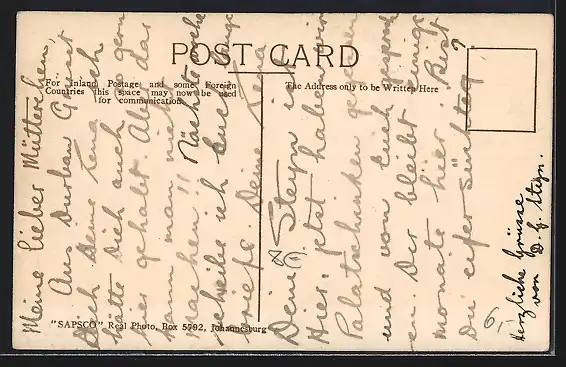 POST CARD
For Inland Postage and some Foreign
Countries this space may now be used
for communication.
The Address only to be Written Here
"SAPSCO" Real Photo, Box 5792, Johannesburg
Meine lieber Mütterchen,
Aus Durban Grüsst
Dich Deine Lena. Ich
hätte Dich auch so gern
hier gehabt. Aber das
kann man nicht
machen!! Nächste Woche
schreibe ich Euch
briefl. Deine Lena
Dein Steyn ist
Hier. Jetzt haben wir
Palatschinken gegessen
und von Euch gesproch
en. Der bleibt einige
monate hier. Bist
Du eifersüchtig?
Herzliche Grüsse
von D. G. Steyn.
6,-